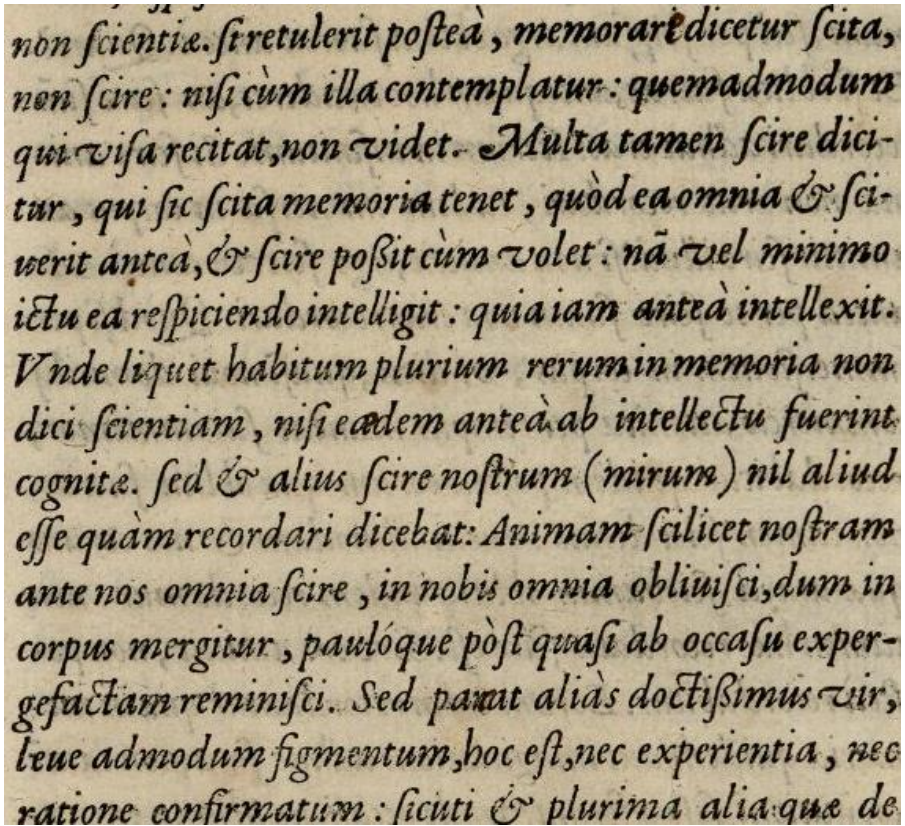 non ſcientiæ. ſi retulerit poſteà, memorari dicetur ſcita,
non ſcire: niſi cùm illa contemplatur: quemadmodum
qui viſa recitat, non videt. Multa tamen ſcire dici-
tur, qui ſic ſcita memoria tenet, quòd ea omnia & ſci-
uerit anteà, & ſcire poßit cùm volet: nã vel minimo
ictu ea reſpiciendo intelligit: quia iam anteà intellexit.
Vnde liquet habitum plurium rerum in memoria non
dici ſcientiam, niſi eædem anteà ab intellectu fuerint
cognitæ. ſed & alius ſcire noſtrum (mirum) nil aliud
eſſe quàm recordari dicebat: Animam ſcilicet noſtram
ante nos omnia ſcire, in nobis omnia obliuiſci, dum in
corpus mergitur, paulóque pòſt quaſi ab occaſu exper-
gefactam reminiſci. Sed aliàs doctißimus vir,
leue admodum figmentum, hoc eſt, nec experientia, nec
ratione confirmatum: ſicuti & plurima alia quæ de